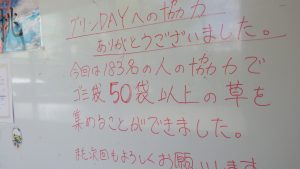 グリンDAYへの協力
ありがとうございました。
今回は183名の人の協力で
ゴミ袋50袋以上の草を
集めることができました。
次回もよろしくお願いします